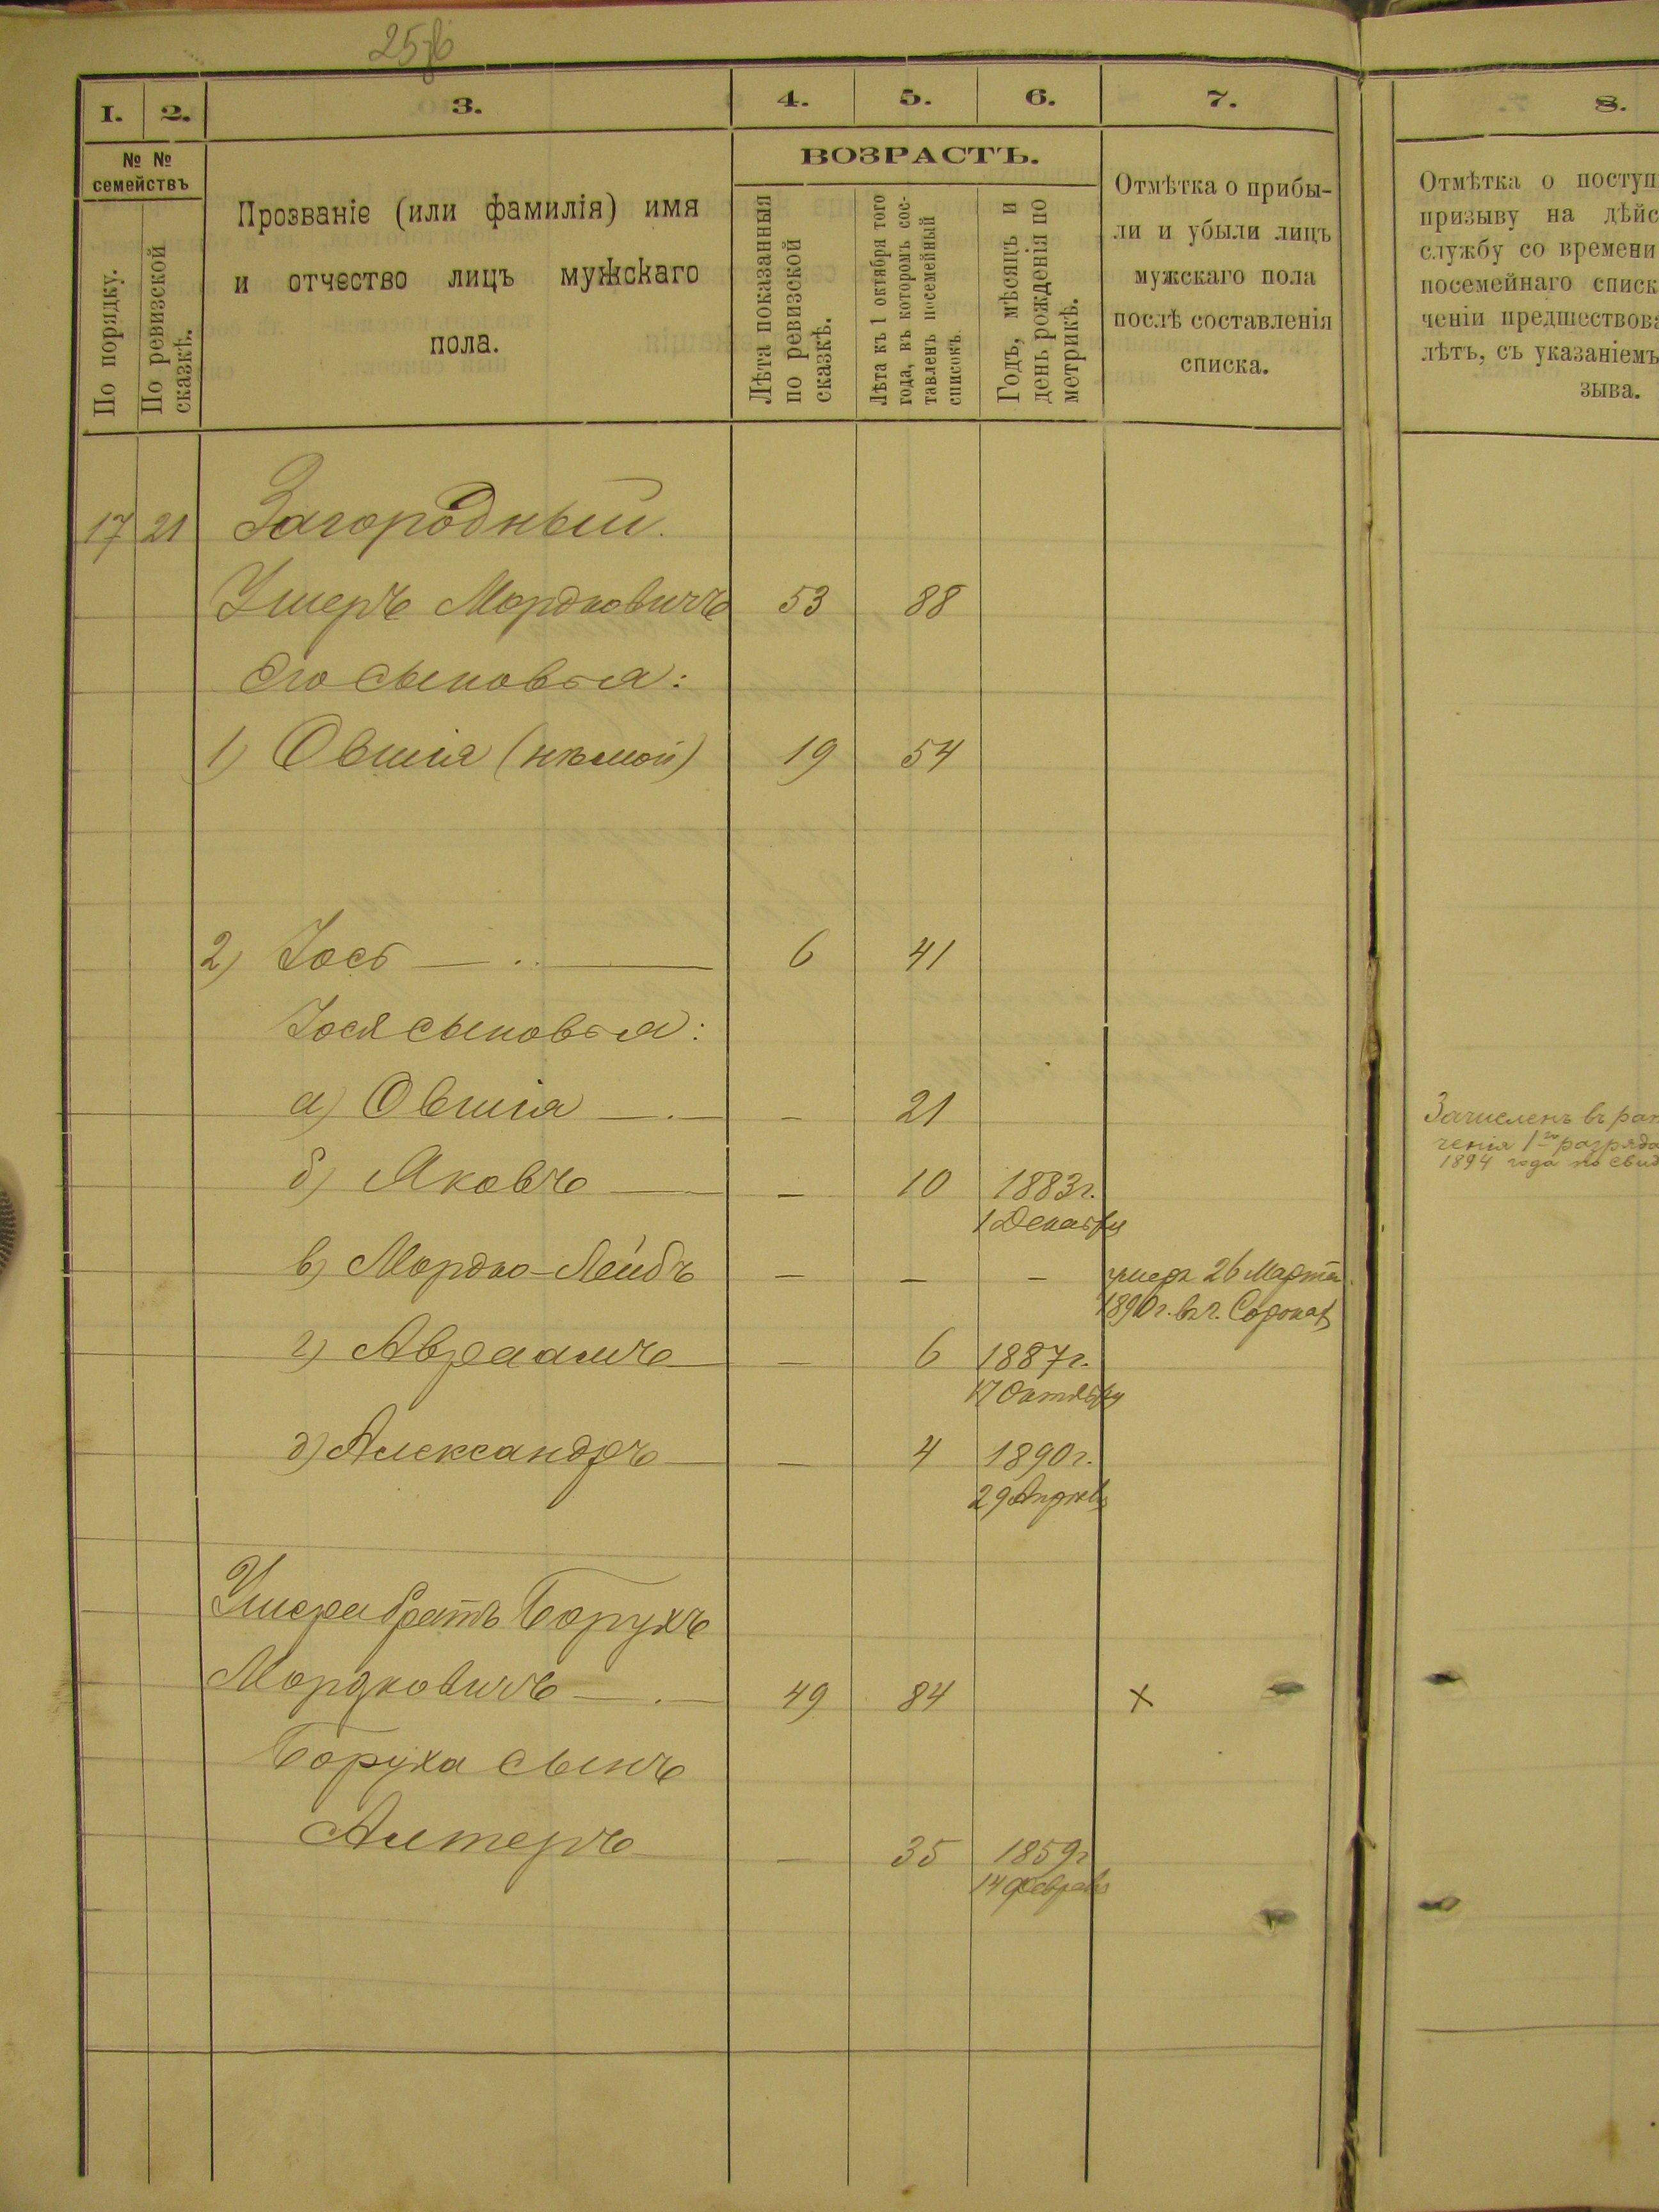 1. 2. 3. 4. 5. 6. 7. 8.
№ № семействъ
По порядку.
По ревизской сказкѣ.
Прозваніе (или фамилія) имя
и отчество лицъ мужскаго
пола.
ВОЗРАСТЪ.
Лѣта показанныя
по ревизской
сказкѣ.
Лѣта къ 1 октября того
года, въ которомъ сос-
тавленъ посемейный
списокъ.
Годъ, мѣсяцъ и
день рожденія по
метрикѣ.
Отмѣтка о прибы-
ли и убыли лицъ
мужскаго пола
послѣ составленія
списка.
Отмѣтка о поступ
призыву на дѣйс
службу со времени
посемейнаго списк
ченіи предшествова
лѣтъ, съ указаніемъ
зыва.
17 21 Загородный.
Ушеръ Мордковичъ 53 88
Его сыновья:
1) Овшія (нѣмой) 19 54
2) Іось 6 41
Іося сыновья:
а) Овшія — 21
Зачисленъ въ рат
ченія 1го разряда
1894 года по свид
б) Яковъ — 10 1883г.
1 Декабря
в) Мордко-Лейбъ — — — умеръ 26 Марта
1890г. въ г. Сорокахъ
г) Авраамъ — 6 1887г.
17 Октября
д) Александръ — 4 1890г.
29 Апрѣля
Ушера братъ Борухъ
Мордковичъ 49 84 х
Боруха сынъ
Алтеръ — 35 1859г
14 Февраля